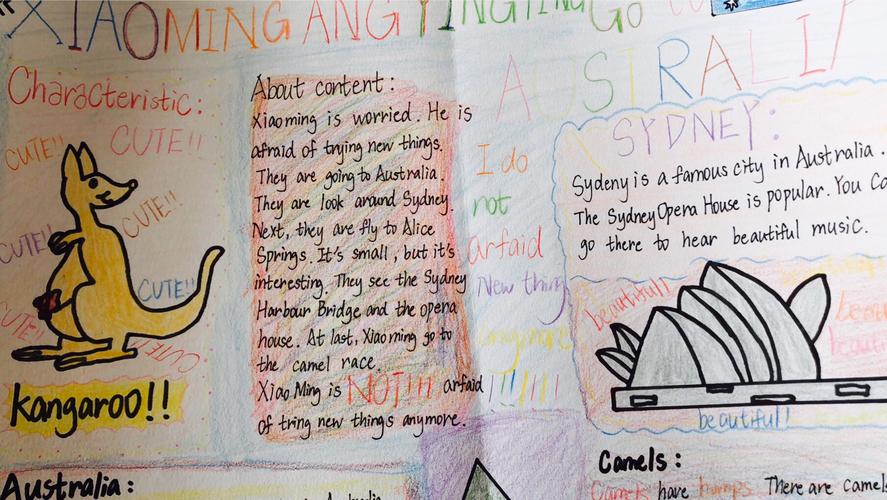 XIAOMING ANG YINGYING Go to
AUSTRALIA
Characteristic:
CUTE!!
CUTE!!
CUTE!!
CUTE!!
CUTE!!
CUTE!!
CUTE!!
kangaroo!!
About content:
Xiaoming is worried. He is
afraid of trying new things.
They are going to Australia.
They are look around Sydney.
Next, they are fly to Alice
Springs. It's small, but it's
interesting. They see the Sydney
Harbour Bridge and the opena
house. At last, Xiaoming go to
the camel race.
Xiao Ming is NOT!!!! arfaid
of tring new things anymore.
I do
not
arfaid
New thing
anymore
!!!!!!!
SYDNEY:
Sydeny is a famous city in Australia.
The Sydney Opera House is popular. You Ca
go there to hear beautiful music.
beautiful!
beautiful!
Australia:
Camels:
Camels have humps. There are camel